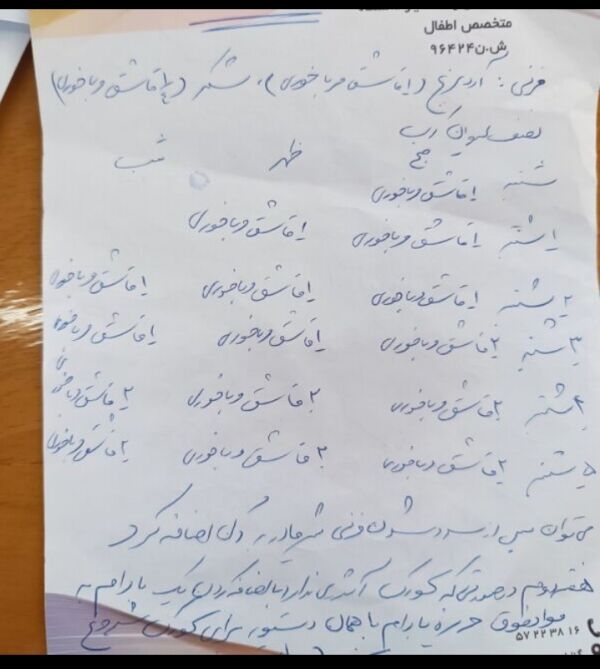 متخصص اطفال
ش.ن ۹۶۴۲۴
فرنی : آرد برنج (۱ قاشق مرباخوری)، شکر (۱/۲ قاشق مرباخوری)
نصف لیوان آب
صبح ظهر شب
شنبه ۱ قاشق مرباخوری
۱ شنبه ۱ قاشق مرباخوری ۱ قاشق مرباخوری
۲ شنبه ۱ قاشق مرباخوری ۱ قاشق مرباخوری ۱ قاشق مرباخوری
۳ شنبه ۲ قاشق مرباخوری ۱ قاشق مرباخوری ۱ قاشق مرباخوری
۴ شنبه ۲ قاشق مرباخوری ۲ قاشق مرباخوری ۲ قاشق مرباخوری
۵ شنبه ۲ قاشق مرباخوری ۲ قاشق مرباخوری ۲ قاشق مرباخوری
می توان پس از سرد شدن فرنی شیر مادر به آن اضافه کرد
هفته دوم در صورتی که کودک آلرژی ندارد با اضافه کردن یک بادام به
مواد فوق حریره بادام با همان دستور برای کودک شروع
۵۷ ۲۲ ۳۸ ۱۶